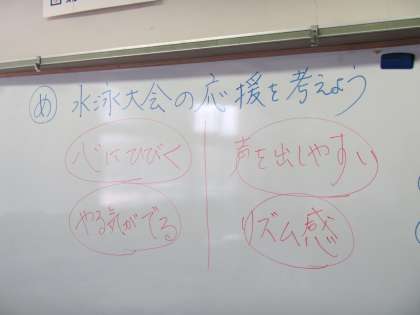 め 水泳大会の応援を考えよう
心にひびく
声を出しやすい
やる気がでる
リズム感